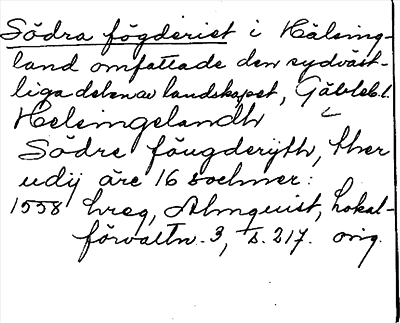 Södra fögderiet i Hälsing-
land omfattade den sydväst-
liga delen av landskapet, Gävleb. l.
Helsingelandh
Södre föugderijth, ther
udij äre 16 sochner:
1558 hreg, Almquist, Lokal-
förvaltn. 3, s. 217. orig.